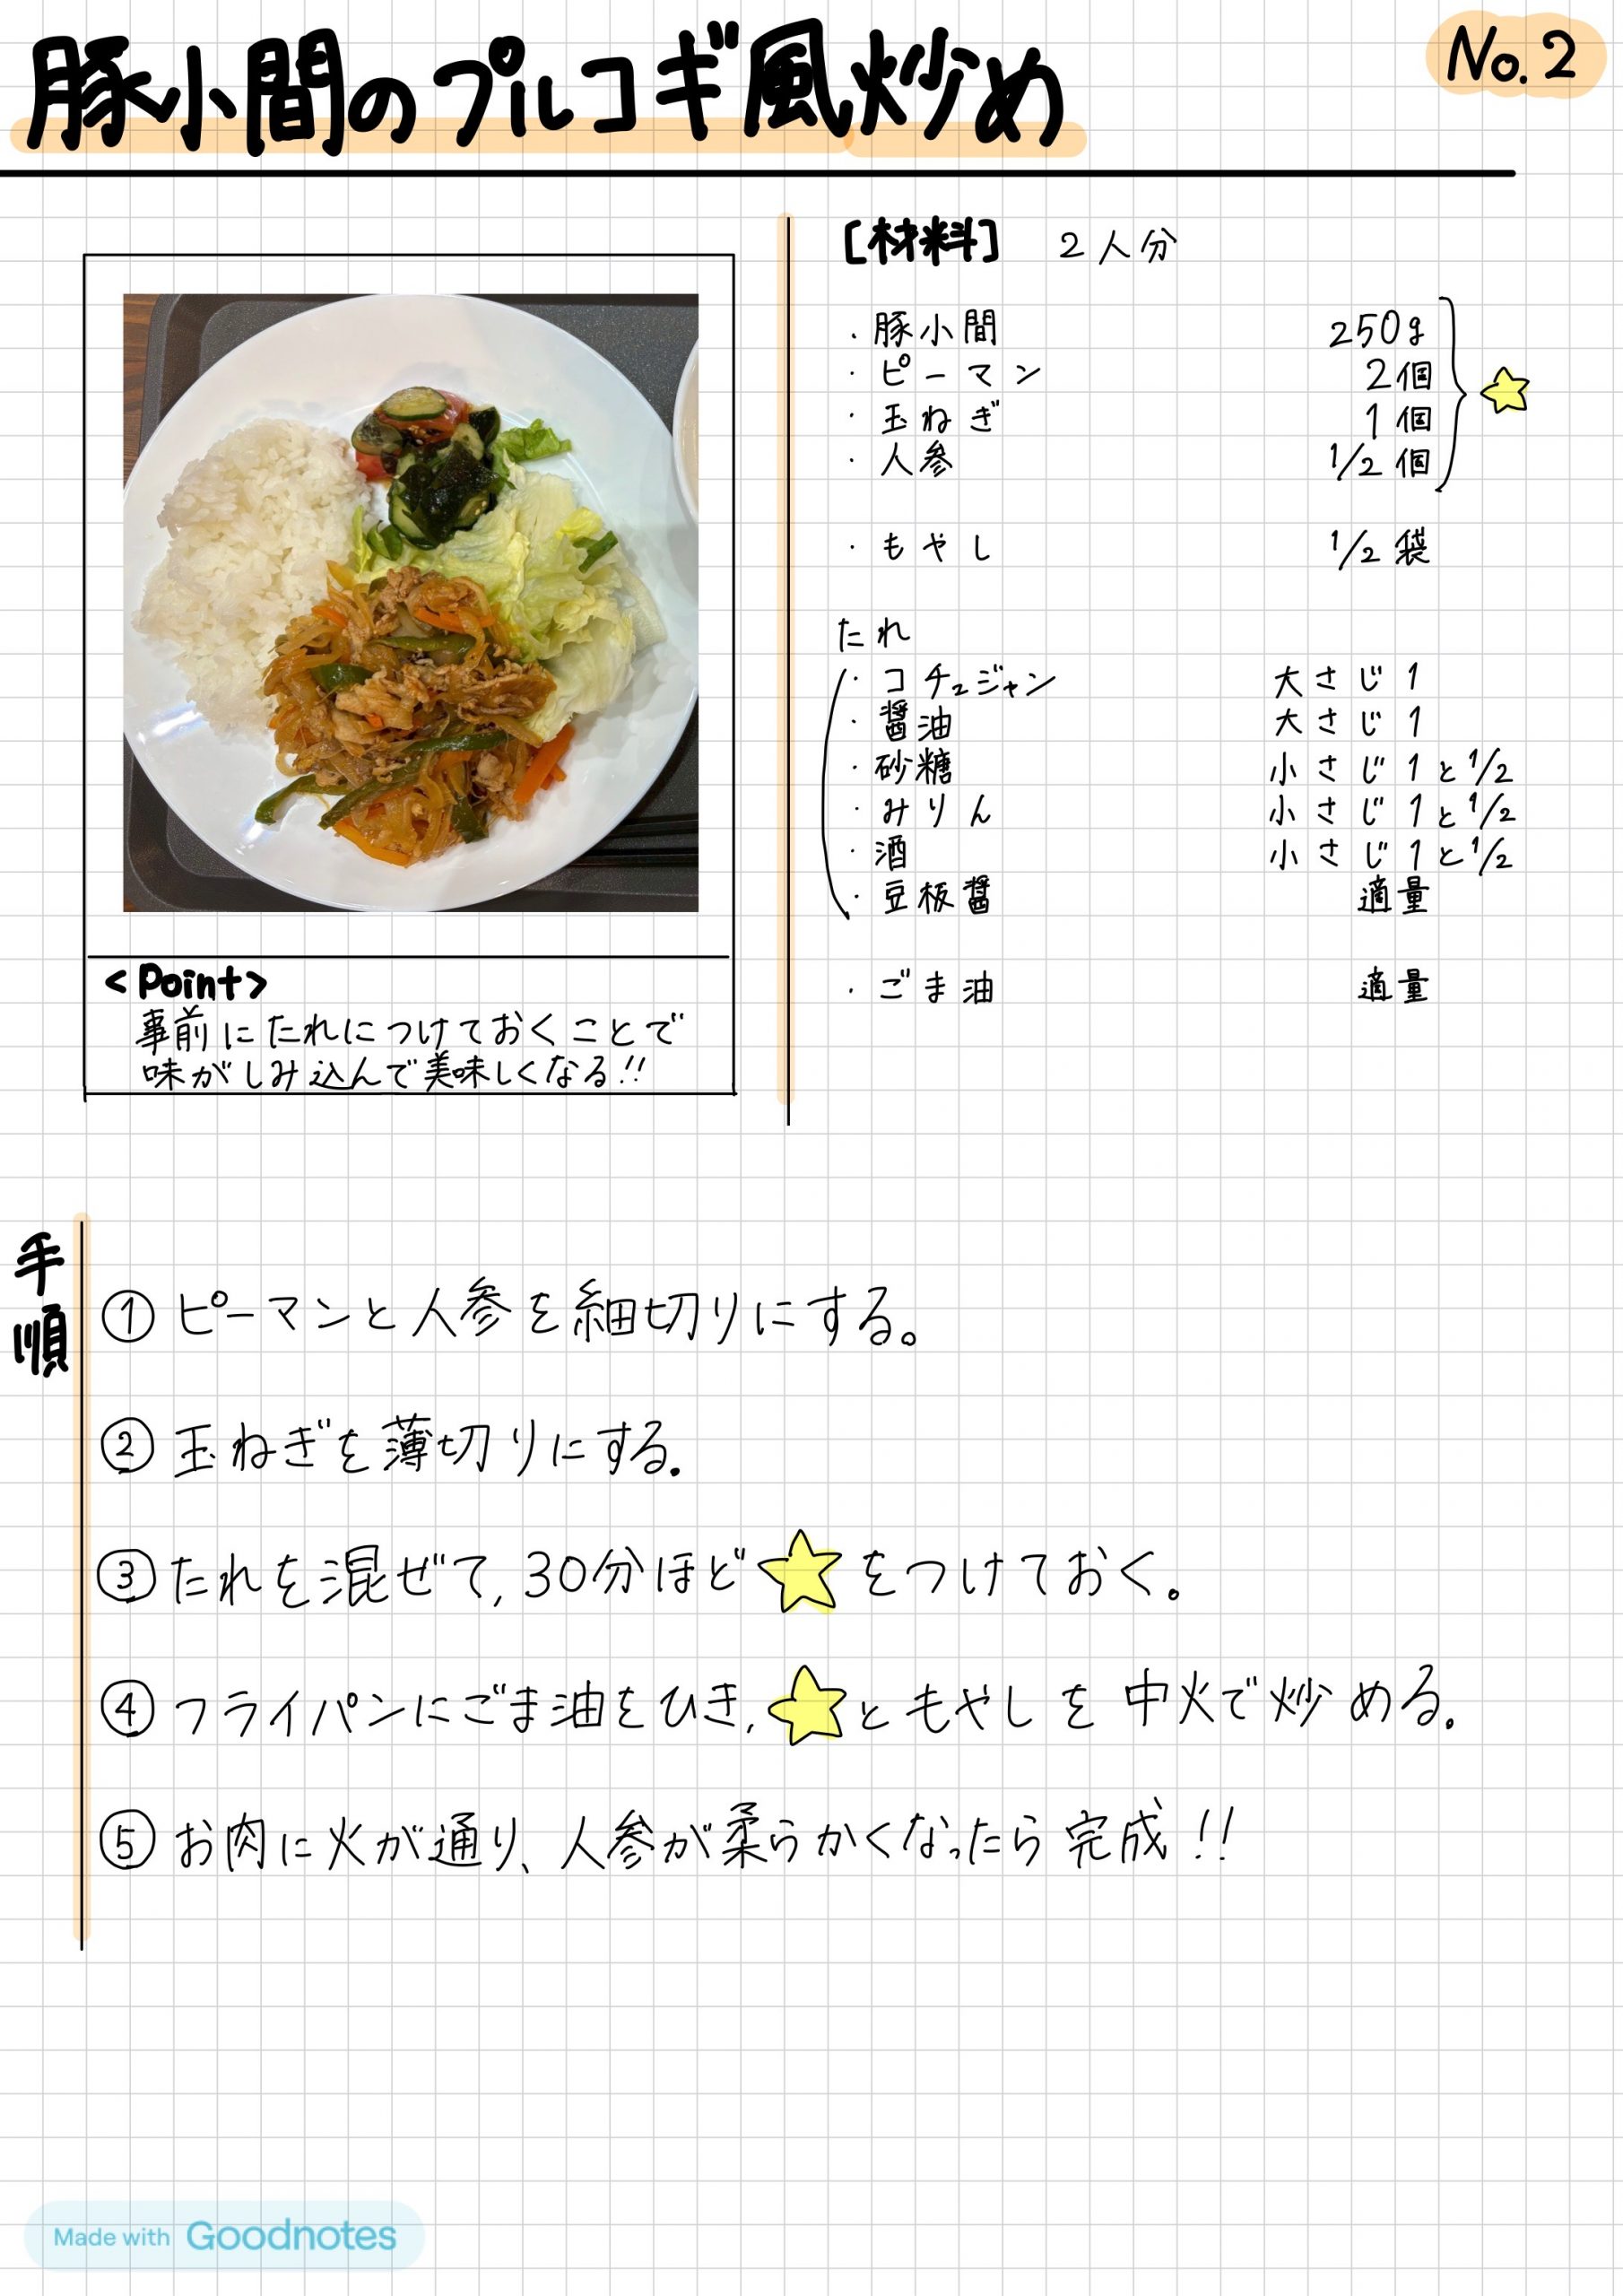 豚小間のプルコギ風炒め
No.2
[材料] 2人分
・豚小間 250g
・ピーマン 2個
・玉ねぎ 1個
・人参 1/2個
・もやし 1/2袋
たれ
・コチュジャン 大さじ1
・醤油 大さじ1
・砂糖 小さじ1と1/2
・みりん 小さじ1と1/2
・酒 小さじ1と1/2
・豆板醤 適量
・ごま油 適量
<Point>
事前にたれにつけておくことで
味がしみ込んで美味しくなる!!
手順
① ピーマンと人参を細切りにする。
② 玉ねぎを薄切りにする.
③ たれを混ぜて,30分ほど☆をつけておく。
④ フライパンにごま油をひき,☆ともやしを中火で炒める.
⑤ お肉に火が通り、人参が柔らかくなったら完成!!
Made with Goodnotes